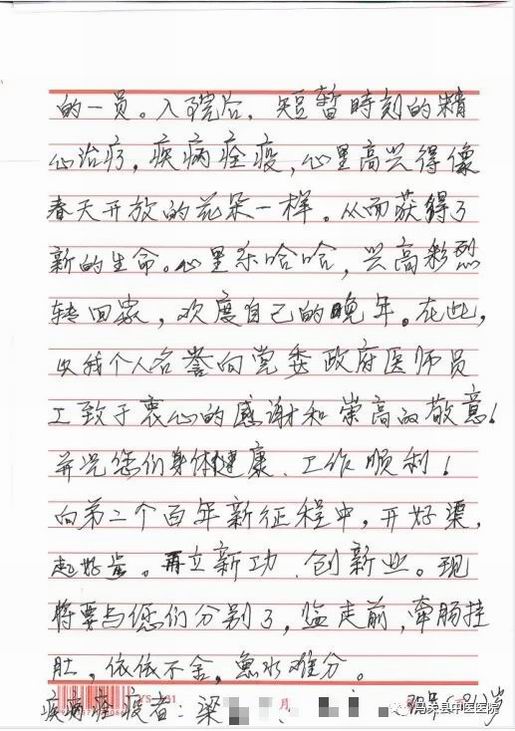 的一员。入院后，短暂時刻的精
心治疗，疾病痊疫，心里高兴得像
春天开放的花朵一样。从而获得了
新的生命。心里乐哈哈，兴高彩烈
转回家，欢度自己的晚年。在此，
以我个人名誉向党委政府医师员
工致于衷心的感谢和崇高的敬意！
并祝您们身体健康、工作顺利！
向第二个百年新征程中，开好渠，
起好步。再立新功、创新业。现
将要与您们分别了，临走前，牵肠挂
肚，依依不舍，鱼水难分。
疾病痊疫者：梁
月
(81)岁
县中医医院